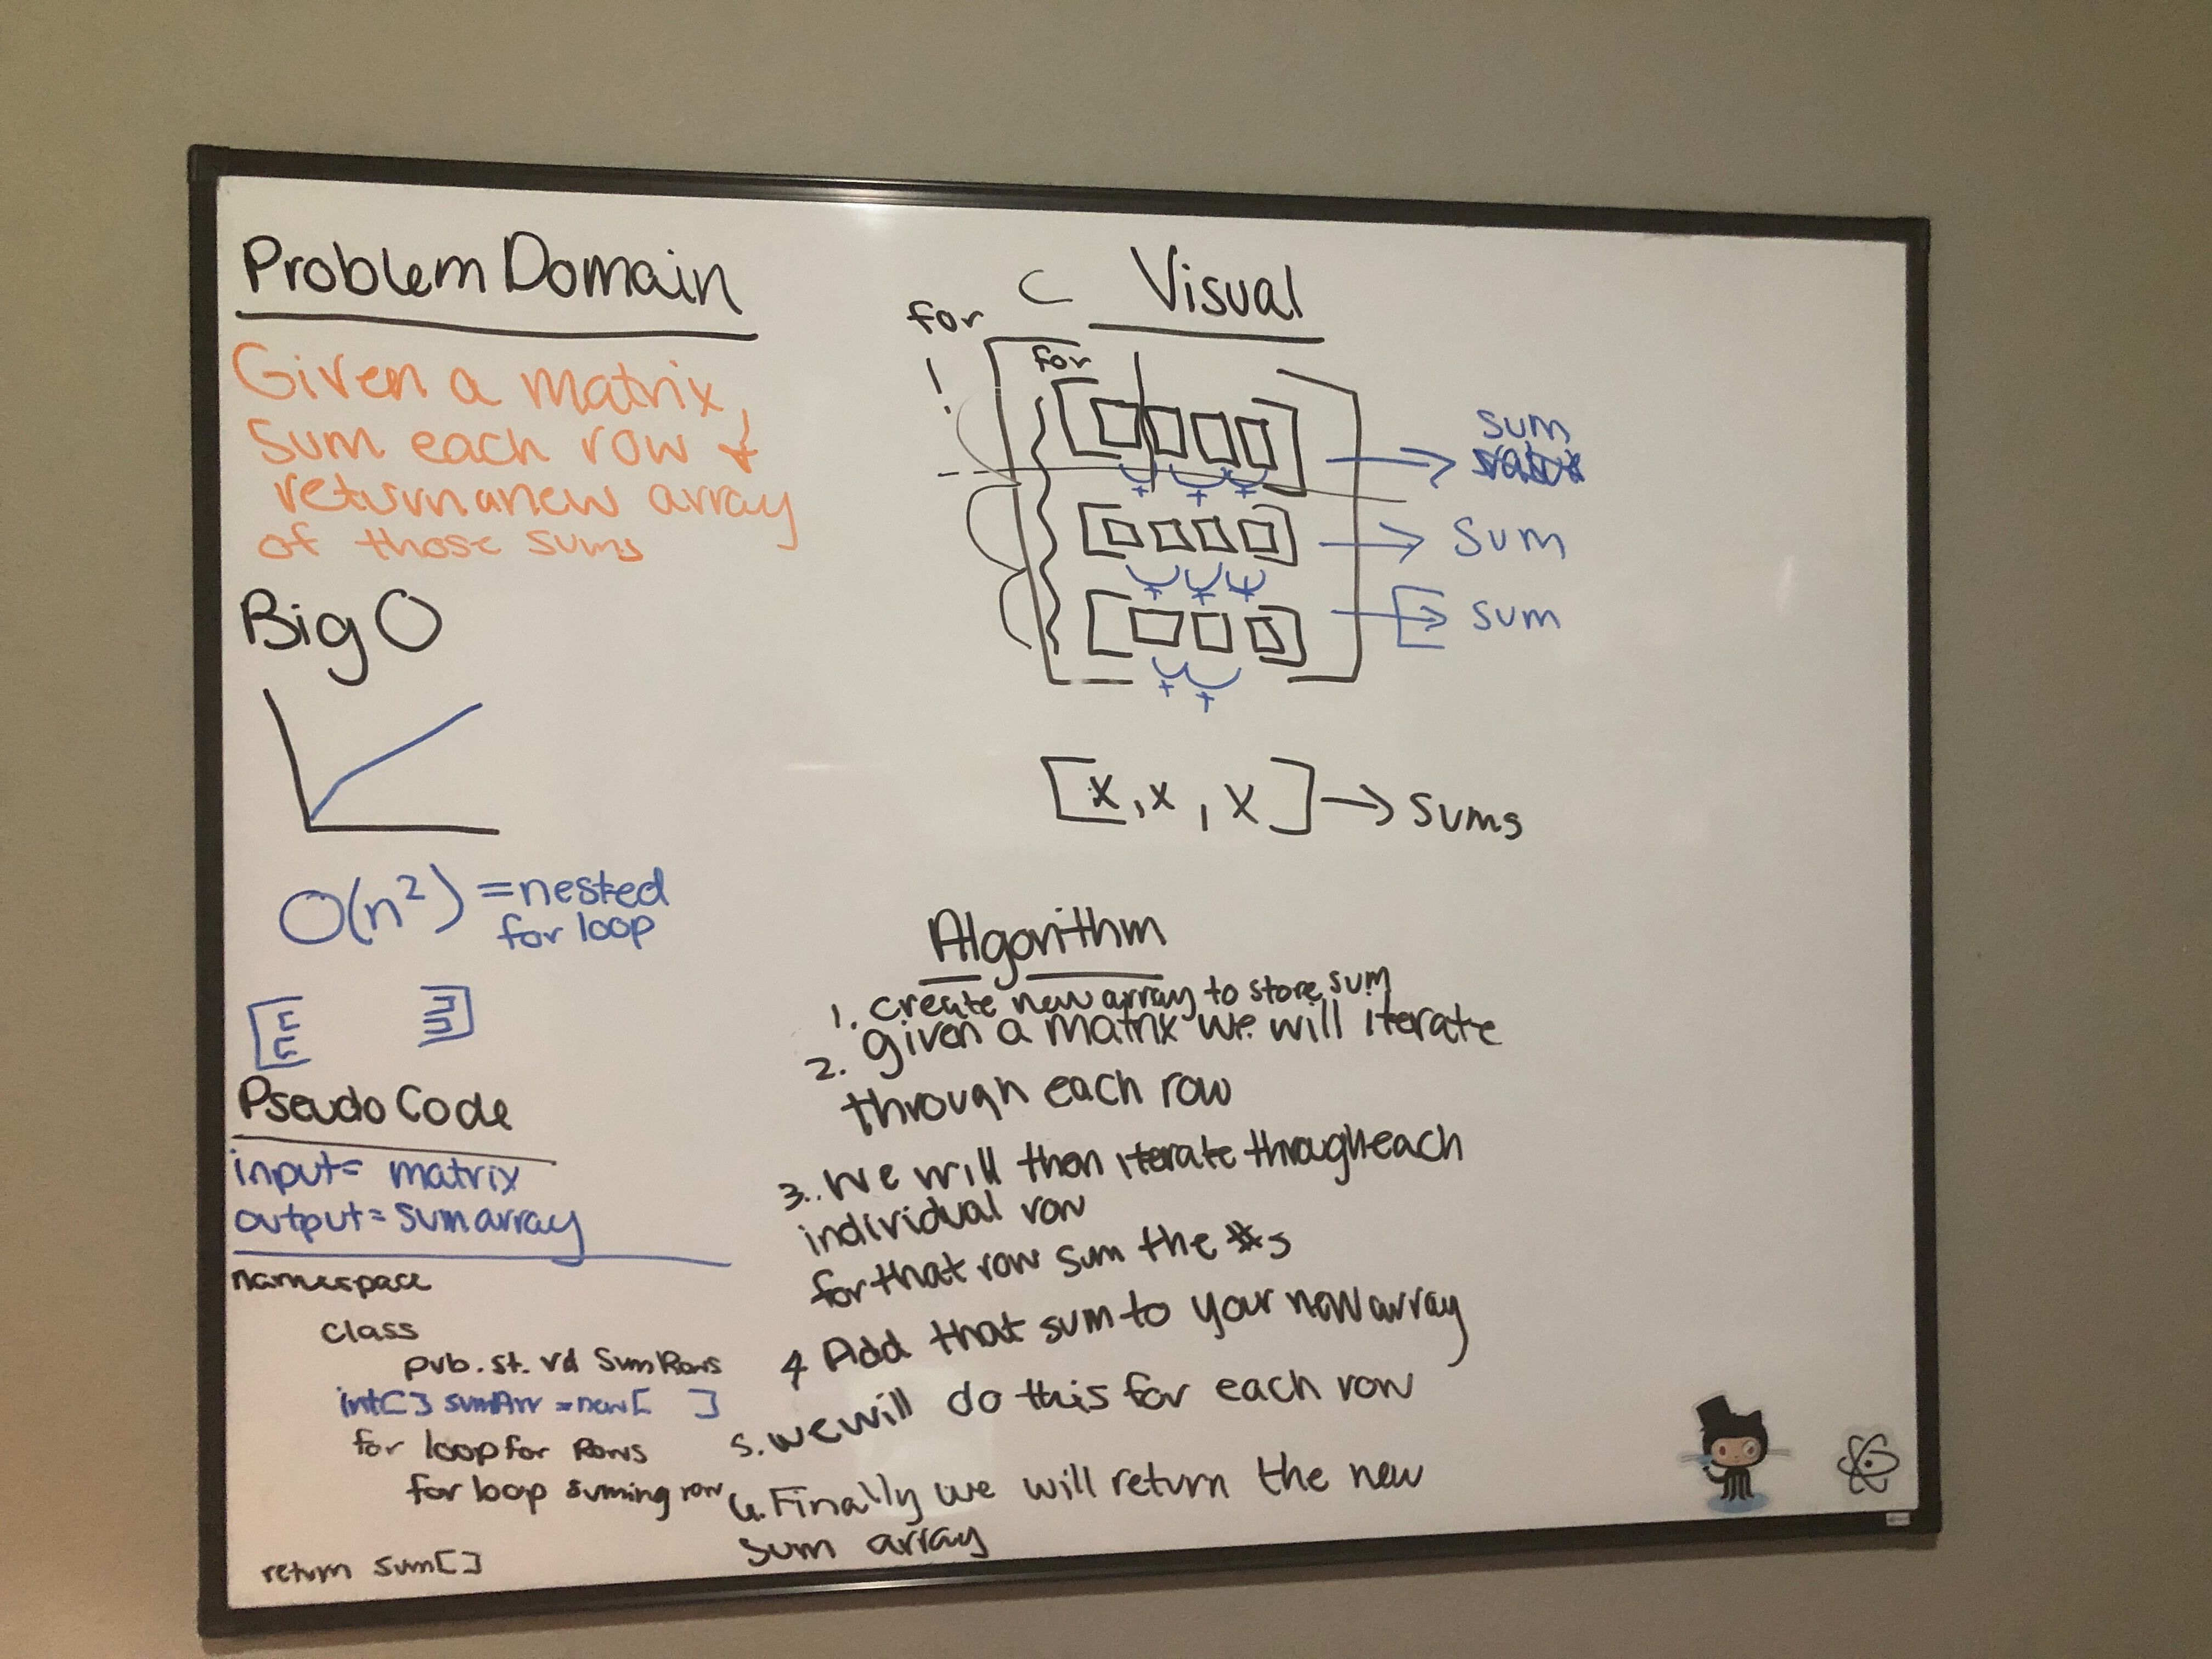 Problem Domain
Given a matrix,
sum each row &
return a new array
of those sums
Big O
O(n²) = nested
for loop
Pseudo Code
input = matrix
output = sum array
namespace
class
pub. st. vd SumRows
int[] sumArr = new[ ]
for loop for Rows
for loop suming row
return sum[]
Visual
for
for
sum
+ + +
sum
+ + +
sum
+ +
[x, x, x] → sums
Algorithm
1. create new array to store sum
2. given a matrix we will iterate
through each row
3. we will then iterate through each
individual row
for that row sum the #s
4 Add that sum to your new array
5. we will do this for each row
6. Finally we will return the new
sum array